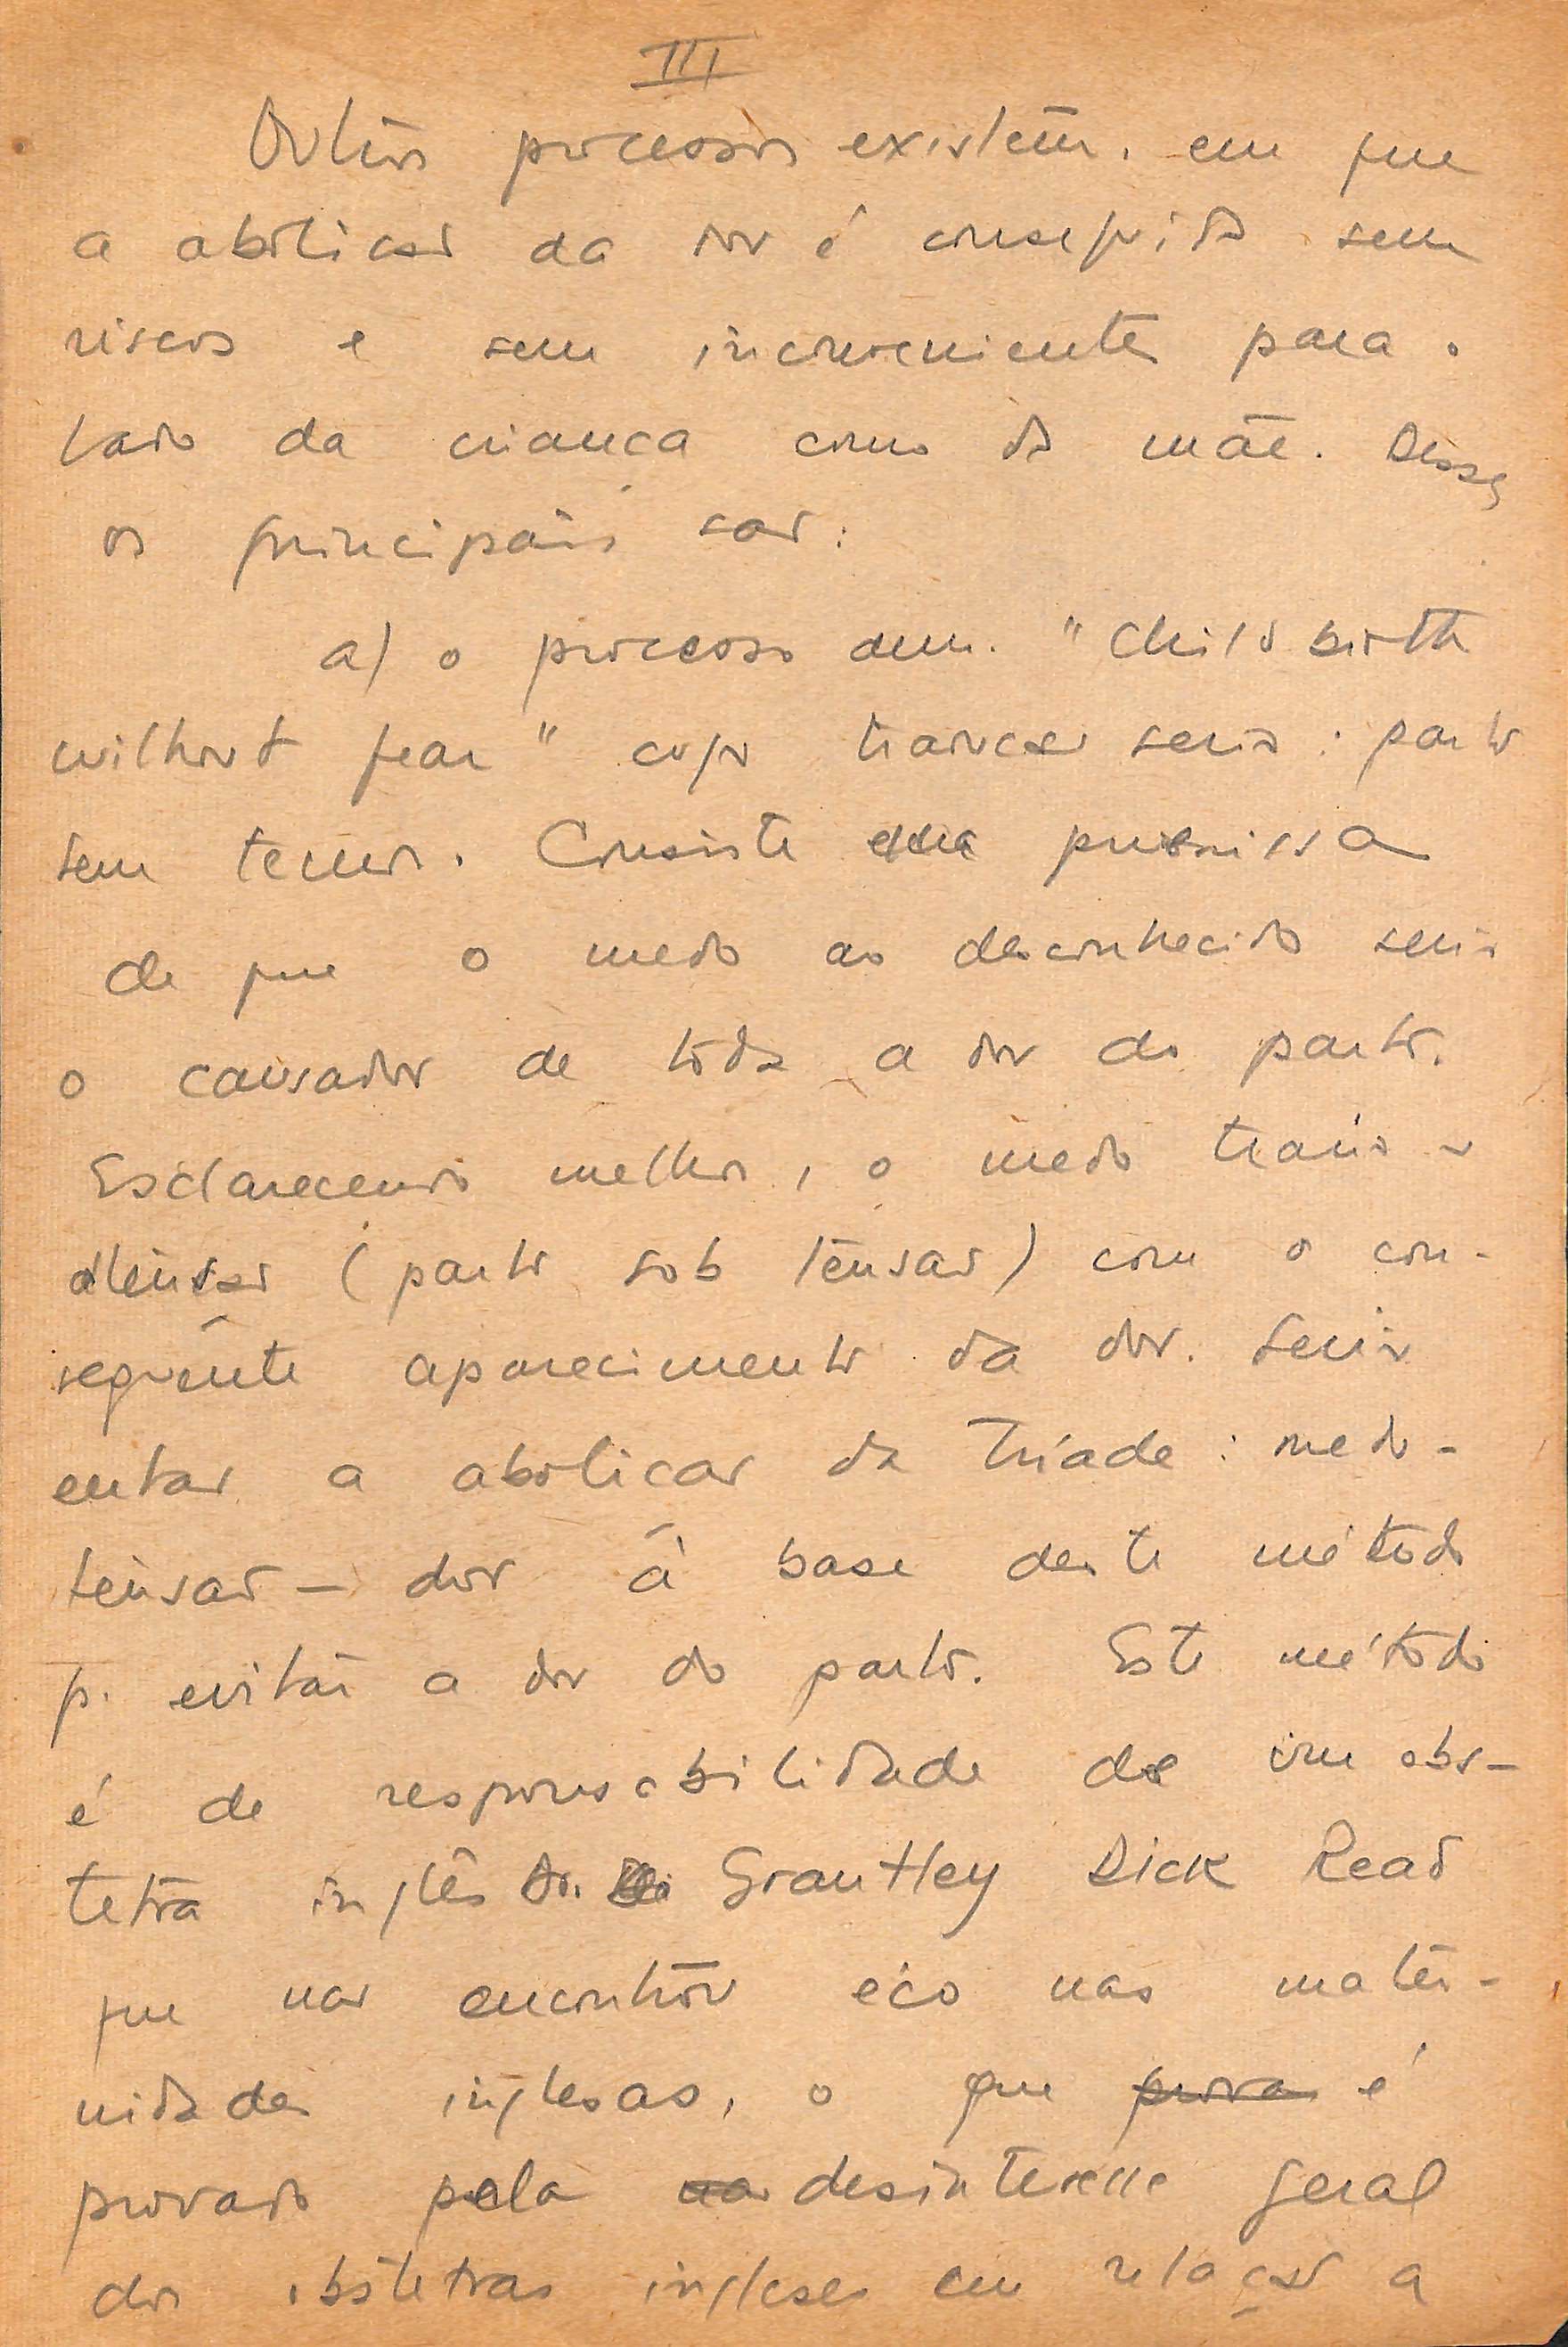 III
Outros processos existem, em que
a abolição da dor é conseguida sem
riscos e sem inconvenientes para o
lado da criança como da mãe. Desses
os principais são:
a) o processo den. "Childbirth
without fear" cujo tradução seria: parto
sem temor. Consiste na premissa
de que o medo ao desconhecido seria
o causador de toda a dor do parto.
Esclarecendo melhor, o medo traria
tensão (parto sob tensão) com o con-
seqüente aparecimento da dor. Seria
então a abolição da Tríade: medo-
tensão - dor à base deste método
p. evitar a dor do parto. Este método
é de responsabilidade de um obs-
tetra inglês Dr. Grantley Dick Read
que não encontrou éco nas mater-
nidades inglesas, o que prova é
provado pela desinteresse geral
dos obstetras ingleses em relação a